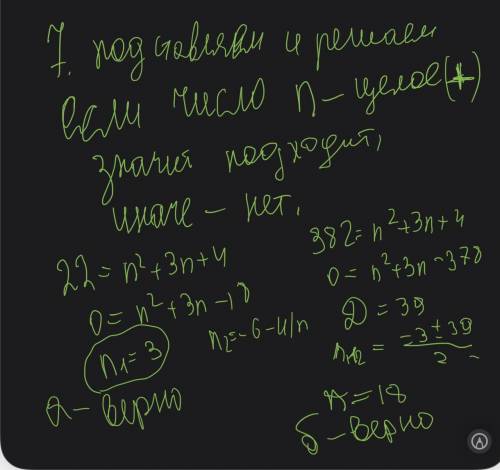 7. подставляем и решаем
если число n - целое (+)
значит подходит,
иначе - нет.
22 = n² + 3n + 4
0 = n² + 3n - 18
n₁ = 3
n₂ = -6 - и/n
а - верно
382 = n² + 3n + 4
0 = n² + 3n - 378
D = 39
n₁,₂ = -3 ± 39
2
n = 18
б - верно